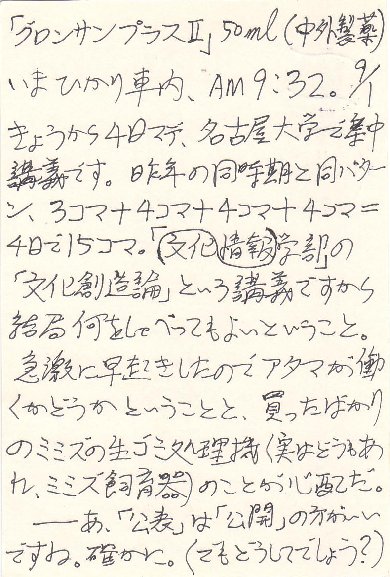 「グロンサンプラスⅡ」50ml(中外製薬)
いまひかり車内、AM9:32。9/1
きょうから4日マデ、名古屋大学で集中
講義です。昨年の同時期と同パター
ン、3コマ+4コマ+4コマ+4コマ=
4日で15コマ。「文化情報学部」の
「文化創造論」という講義ですから
結局何をしゃべってもよいということ。
急激に早起きしたのでアタマが働
くかどうかということと、買ったばかり
のミミズの生ゴミ処理機(実はどうもあ
れ、ミミズ飼育器)のことが心配だ。
――あ、「公表」は「公開」の方がいい
ですね。確かに。(でもどうしてでしょう?)